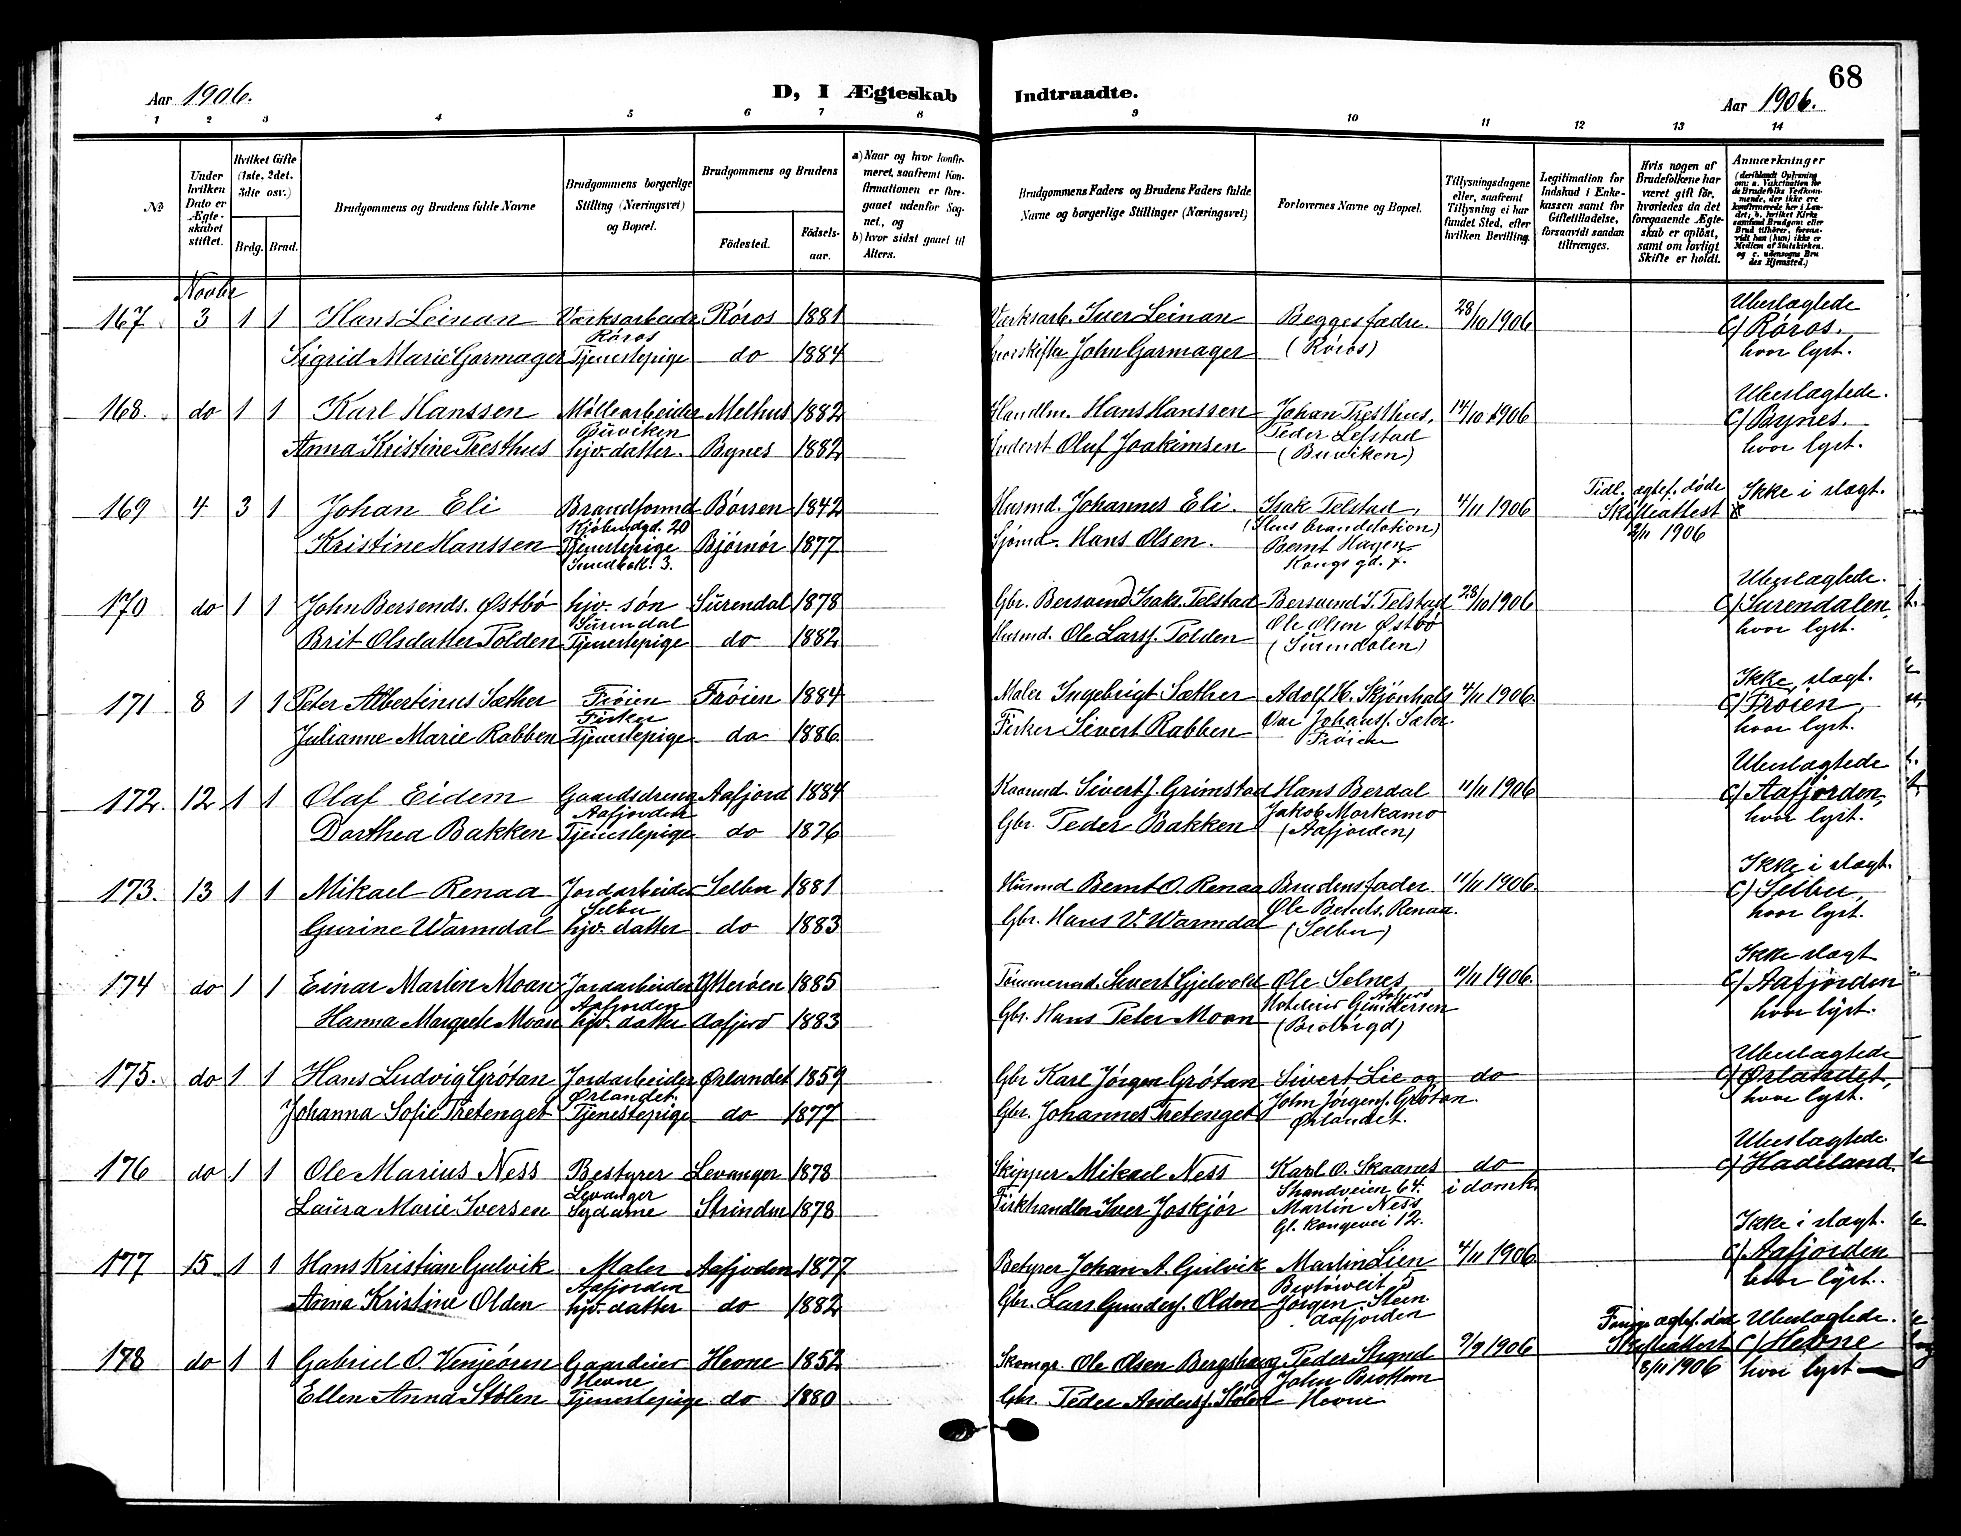 68
Aar 1906.
D, I Ægteskab Indtraadte.
Aar 1906.
1 2 3 4 5 6 7 8 9 10 11 12 13 14
№
Under hvilken Dato er Ægteskabet stiftet.
Hvilket Gifte (1ste, 2det, 3die osv.)
Brdg. Brud.
Brudgommens og Brudens fulde Navne
Brudgommens borgerlige Stilling (Næringsvei) og Bopæl.
Brudgommens og Brudens
Fødested.
Fødselsaar.
a) Naar og hvor konfirmeret, saafremt Konfirmationen er foregaaet udenfor Sognet, og
b) hvor sidst gaaet til Alters.
Brudgommens Faders og Brudens Faders fulde Navne og borgerlige Stillinger (Næringsvei)
Forlovernes Navne og Bopæl.
Tillysningsdagene eller, saafremt Tillysning ei har fundet Sted, efter hvilken Bevilling.
Legitimation for Indskud i Enkekassen samt for Giftetilladelse, forsaavidt saadan tiltrænges.
Hvis nogen af Brudefolkene har været gift før, hvorledes da det foregaaende Ægteskab er opløst, samt om lovligt Skifte er holdt.
Anmærkninger
Novbr
167 3 1 1 Hans Leinan Værksarbeider Røros Røros 1881 Værksarb. Iver Leinan Begges fædre. (Røros) 28/10 1906 Ubeslægtede C/ Røros, hvor lyst.
Sigrid Marie Garmager Tjenestepige do 1884 John Garmager
168. do 1 1 Karl Hanssen Møllearbeider Buviken Melhus 1882 Handlm. Hans Hanssen Johan Presthus, Peder Lefstad (Buviken) 14/10 1906 Ubeslægtede. C/ Bynes. hvor lyst.
Anna Kristine Presthus hjv. datter. Bynes 1882 Inderst Oluf Joakimsen
169 4 3 1 Johan Eli Brandformd Kjøbmdgd. 20 Børsen 1842 Husmd. Johannes Eli. Isak Telstad, Bernt Hagen Kongs gd. 7. 4/11 1906 Tidl. ægtef. døde Skifteattest 2/11 1906 Ikke i slægt.
Kristine Hanssen Tjenestepige Bjørnør 1877 Sjømd. Hans Olsen.
170 do 1 1 John Bersends. Østbø hjv. søn Surendal Surendal 1878 Gbr. Bersvend Isaks. Telstad Bersvend I. Telstad Ole Olsen Østbø (Surendalen) 28/10 1906 Ubeslægtede. C/ Surendalen, hvor lyst.
Brit Olsdatter Polden Tjenestepige do 1882 Husmd. Ole Larss. Polden
171 8 1 1 Peter Albertinus Sæther Frøien Fisker Frøien 1884 Maler Ingebrigt Sæther Adolf K. Skjønhals Ove Johanss. Frøien 4/11 1906 Ikke slægt. C/ Frøien, hvor lyst.
Julianne Marie Rabben Tjenestepige do 1886 Fisker Sivert Rabben
172. 12 1 1 Olaf Eidem Gaardsdreng Aafjorden Aafjord 1884 Kaarmd. Sivert J. Grimstad Hans Berdal Jakob Morkamo (Aafjorden) 11/11 1906 Ubeslægtede C/ Aafjorden, hvor lyst.
Dorthea Bakken Tjenestepige do 1876 Gbr. Peder Bakken
173. 13 1 1 Mikael Renaa Jordarbeider Selbu Selbu 1881 Husmd Bernt O. Renaa Brudens fader Ole Bernts. Renaa. (Selbu) 11/11 1906 Ikke i slægt. C/ Selbu, hvor lyst.
Gurine Warmdal hjv. datter do 1883 Gbr. Hans V. Warmdal
174 do 1 1 Einar Martin Moan Jordarbeider Aafjorden Ytterøen 1885 Tømmermd. Sivert Gjelvold Ole Selnes Aafjord Gundersen 11/11 1906. Ikke slægt C/ Aafjorden hvor lyst.
Hanna Margrete Moan hjv. datter Aafjord 1883 Gbr. Hans Peter Moan
175. do 1 1 Hans Ludvig Grøtan Jordarbeider Ørlandet. Ørlandet 1859 Gbr Karl Jørgen Grøtan Sivert Lie og John Jørgens. Grøtan. Ørlandet. do Ubeslægtede C/ Ørlandet, hvor lyst.
Johanna Sofie Pretenget Tjenestepige do 1877 Gbr. Johannes Pretenget
176 do 1 1 Ole Marius Ness Bestyrer Levanger Levanger 1878 Skipper Mikael Ness Karl O. Skaanes Strandveien 64. Martin Ness Gl. Kongevei 12. do i domk. Ubeslægtede. C/ Hadeland.
Laura Marie Iversen Sydame Strinden 1878 Fiskhandler Iver Joskjør
177 15 1 1 Hans Kristian Gulvik Maler Aafjorden Aafjorden 1877 Betyrer Johan A. Gulvik Martin Lien Jørgen Steen Aafjorden 4/11 1906 Ikke i slægt. C/ Aafjorden hvor lyst.
Anna Kristine Olden hjv. datter do 1882 Gbr. Lars Gunders. Olden
178 do 1 1 Gabriel O. Venjeøren Gaardeier Hevne Hevne 1852 Skomgr. Ole Olsen Bergshaug Peder Strand John Brottem Hevne 9/9 1906 ægtef. død Skifteattest 8/11 1906 Ubeslægtede. C/ Hevne hvor lyst
Ellen Anna Stølen Tjenestepige do 1880 Gbr. Peder Anderss. Stølen